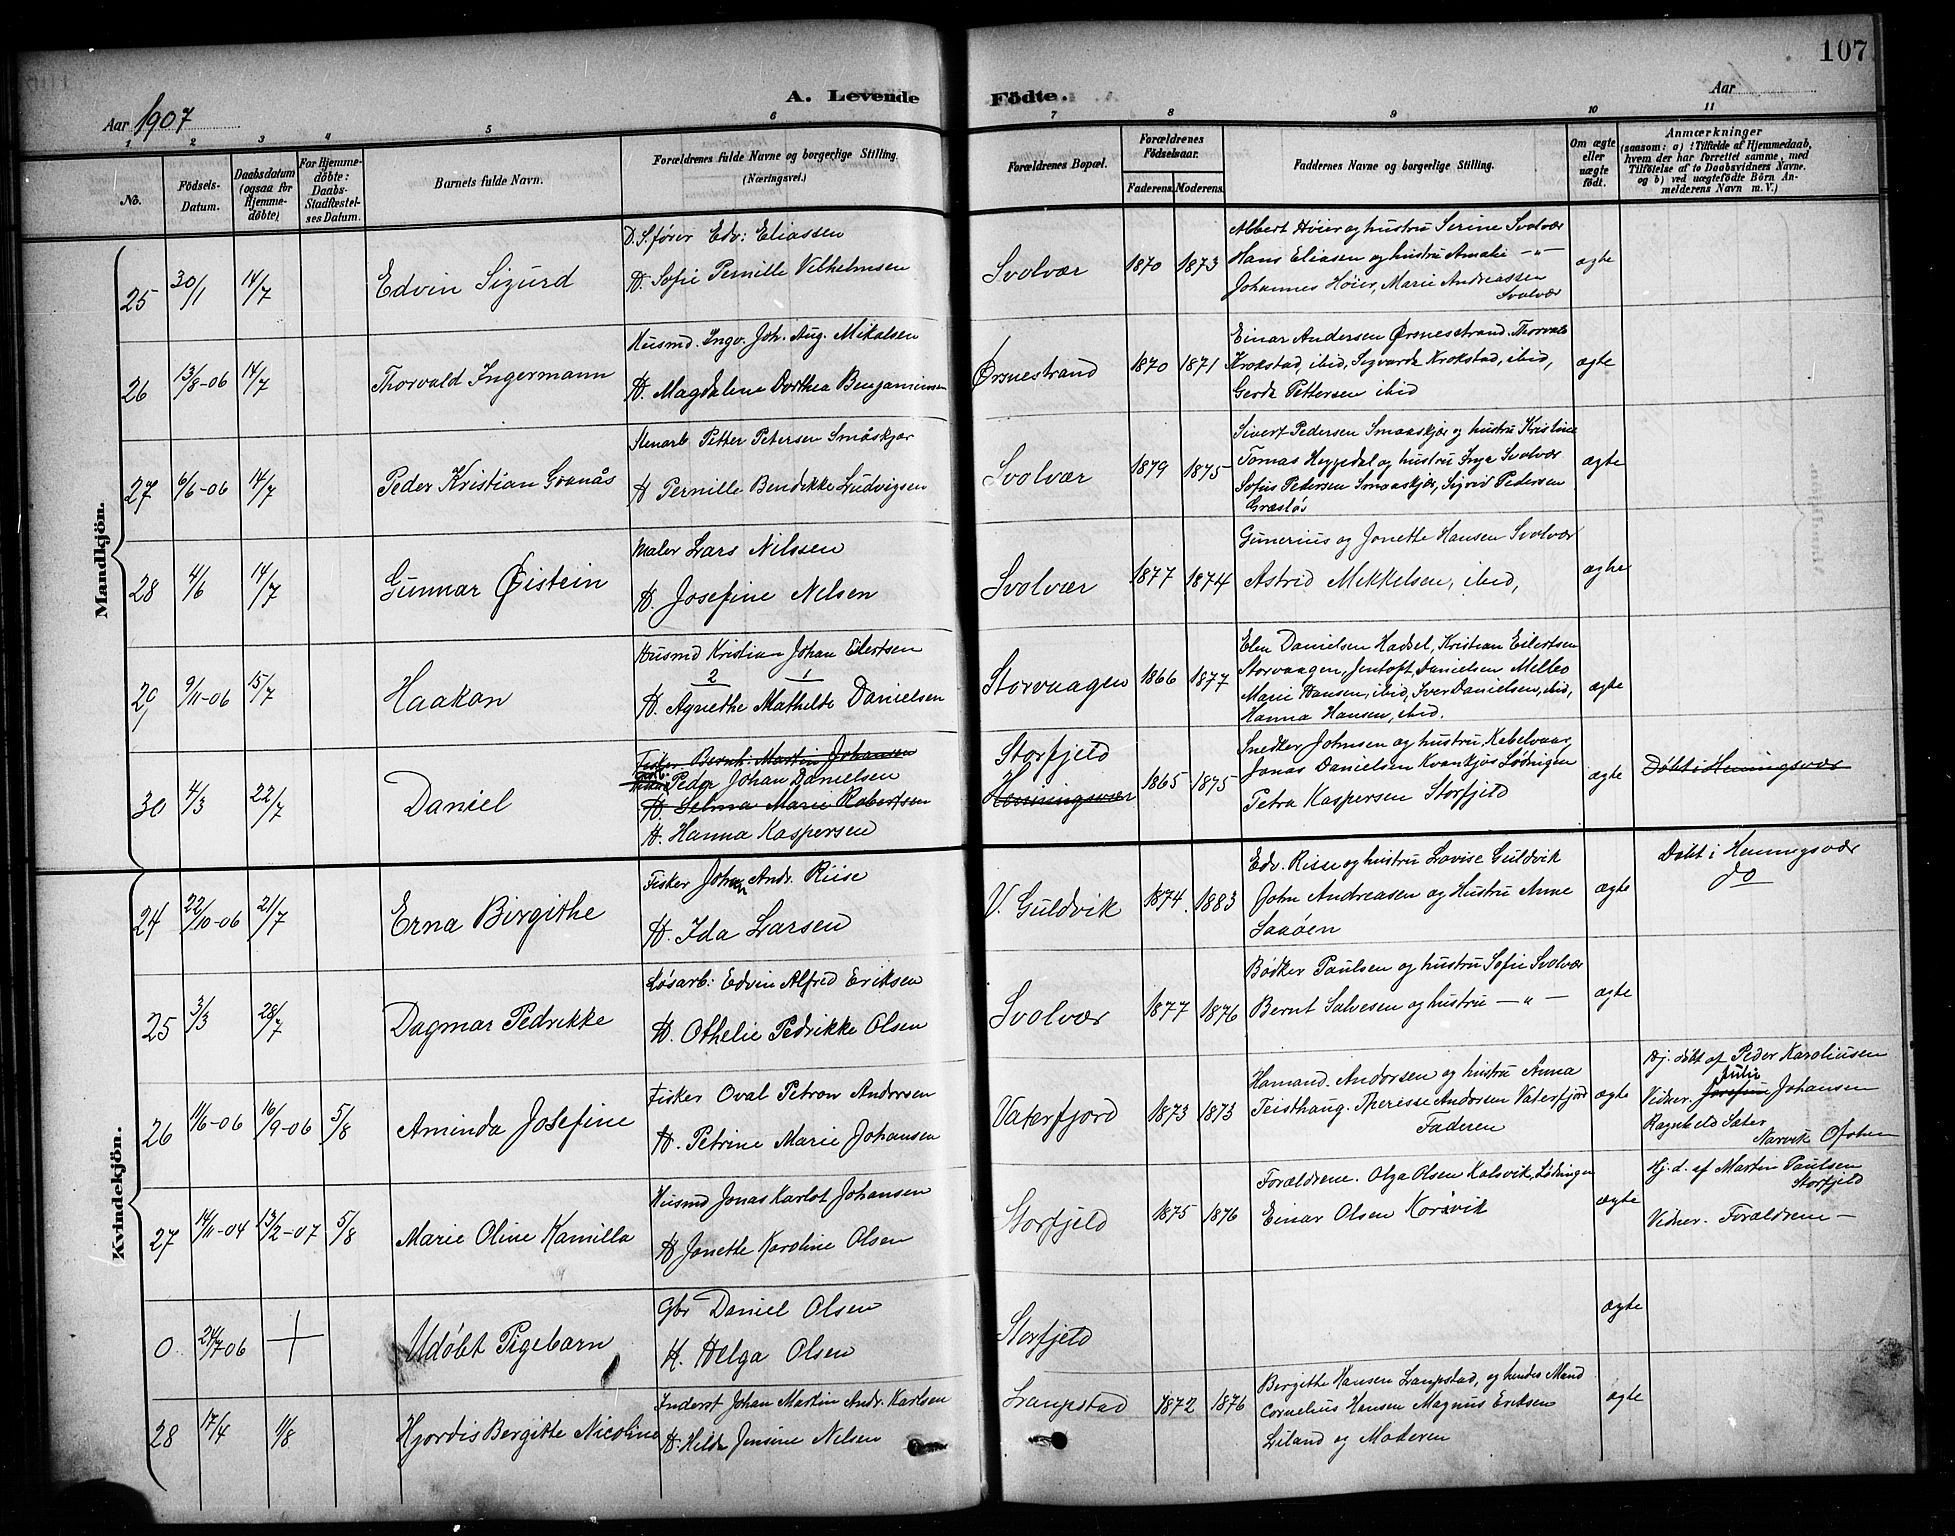 107
A. Levende Födte.
Aar 1907
Aar
1 2 3 4 5 6 7 8 9 10 11
No.
Födsels-Datum.
Daabsdatum (ogsaa for Hjemme-döbte)
For Hjemme-döbte: Daabs-Stadfæstel-ses Datum.
Barnets fulde Navn.
Forældrenes fulde Navne og borgerlige Stilling. (Næringsvei.)
Forældrenes Bopæl.
Forældrenes Födselsaar.
Faderens. Moderens.
Faddernes Navne og borgerlige Stilling.
Om ægte eller uægte født.
Anmærkninger
(saasom: a) i Tilfælde af Hjemmedaab,
hvem der har forrettet samme, med
Tilføielse af to Daabsvidners Navne.
og b) ved uægtefödte Börn An-
melderens Navn m. V.)
Mandkjön.
25 30/1 14/7 Edvin Sigurd
D.S.fører Edv: Eliassen
H. Sofie Pernille Vilhelmsen
Svolvær 1870 1873
Albert Høier og hustru Serine Svolvær
Hans Eliasen og hustru Amalie — " —
Johannes Høier, Marie Andreassen
Svolvær
ægte
26 13/8-06 14/7 Thorvald Ingermann
Husmd. Ingv. Joh. Aug. Mikalsen
H. Magdalene Dorthea Benjaminsen
Ørsnestrand 1870 1871
Einar Andersen Ørsnestrand. Thorvald
Krokstad, ibid, Sigvarda Krokstad, ibid,
Gerda Pettersen ibid
ægte
27 6/6-06 14/7 Peder Kristian Granås
Stenarb Petter Petersen Småskjær
H Pernille Bendikke Ludvigsen
Svolvær 1879 1875
Sivert Pedersen Smaaskjær og hustru Kristine
Tomas Heggedal og hustru Inga Svolvær
Sofus Pedersen Smaaskjær, Sigrid Pedersen
ægte
28 4/6 14/7 Gunnar Øistein
Maler Lars Nilssen
H. Josefine Nelsen
Svolvær 1877 1874
Gunerius og Jonette Hansen Svolvær
Astrid Mikkelsen, ibid,
ægte
29 9/11-06 15/7 Haakon
Husmd Kristian Johan Eilertsen
2 1
H. Agnethe Mathilde Danielsen
Storvaagen 1866 1877
Elen Danielsen Hadsel, Kristian Eilertsen
Storvaagen, Jentoft Danielsen Melbo
Marie Hansen, ibid, Iver Danielsen, ibid,
Hanna Hansen, ibid.
ægte
30 4/3 22/7 Daniel
Fisker Bernh. Martin Johansen
Peder Johan Danielsen
H. Selma Marie Robertsen
H. Hanna Kaspersen
Storfjeld
Henningsvær
1865 1875
Snedker Johnsen og hustru, Kabelvaag,
Jonas Danielsen Kvankjos Lødingen
Petra Kaspersen Storfjeld
ægte
Døbt i Henningsvær
Kvindekjön.
24 22/10-06 21/7 Erna Birgithe
Fisker Johan Andr. Riise
H. Ida Larsen
V. Guldvik 1874. 1883
Edv. Risse og hustru Lovise Guldvik
John Andreasen og Hustru Anne
ægte
Døbt i Henningsvær
do
25 3/3 28/7 Dagmar Pedrikke
Løsarb: Edvin Alfred Eriksen
H. Othelie Pedrikke Olsen
Svolvær 1877 1876
Bødker Paulsen og hustru Sofie Svolvær
Bernt Salvesen og hustru — " —
ægte
26 11/6-06 16/9-06 5/8 Aminda Josefine
Fisker Oval Petron Andersen
H. Petrine Marie Johansen
Vaterfjord 1873 1873
Hamand. Andorsen og hustru Anna
Teisthaug. Therese Andorsen Vaterfjord
Faderen
ægte
Hj. døbt af Peder Karoliusen
Julie
Vidner. Josefine Johansen
Ragnhild Sater
Narvik Ofoten
27 14/11-04 13/2-07 5/8 Marie Oline Kamilla
Husmd Jonas Karlot Johansen
H Jonette Karoline Olsen
Storfjeld 1875 1876
Forældrene. Olga Olsen Kalsvik, Lødingen
Einar Olsen Korsvik
ægte
Hj. d. af Martin Paulsen
Storfjeld
Vidner. Forældrene —
0 24/7 06 + Udøbt Pigebarn
Gbr Daniel Olsen
H. Helga Olsen
Storfjeld
ægte
28 17/4 11/8 Hjordis Bergitte Nicoline
Inderst Johan Martin Andr. Karlsen
H. Hilda Jensine Nelsen
Laupstad 1872 1876
Bergitte Hansen Laupstad, og hendes Mand
Cornelius Hansen Magnus Eriksen
Liland og Moderen
ægte